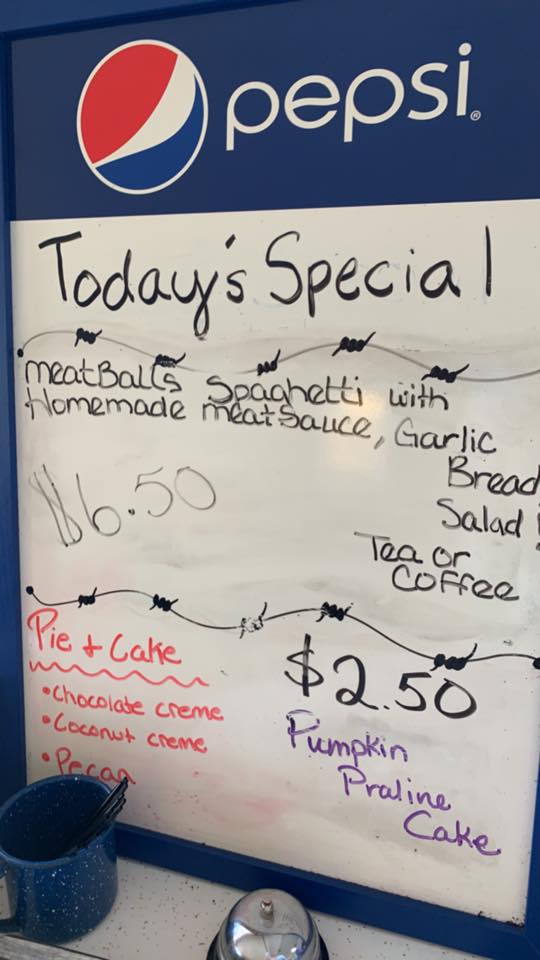 pepsi®
Today's Special
meatBalls Spaghetti with
Homemade meatSauce, Garlic
Bread
Salad
$6.50
Tea or
Coffee
Pie & Cake
•Chocolate creme
•Coconut creme
•Pecan
$2.50
Pumpkin
Praline
Cake